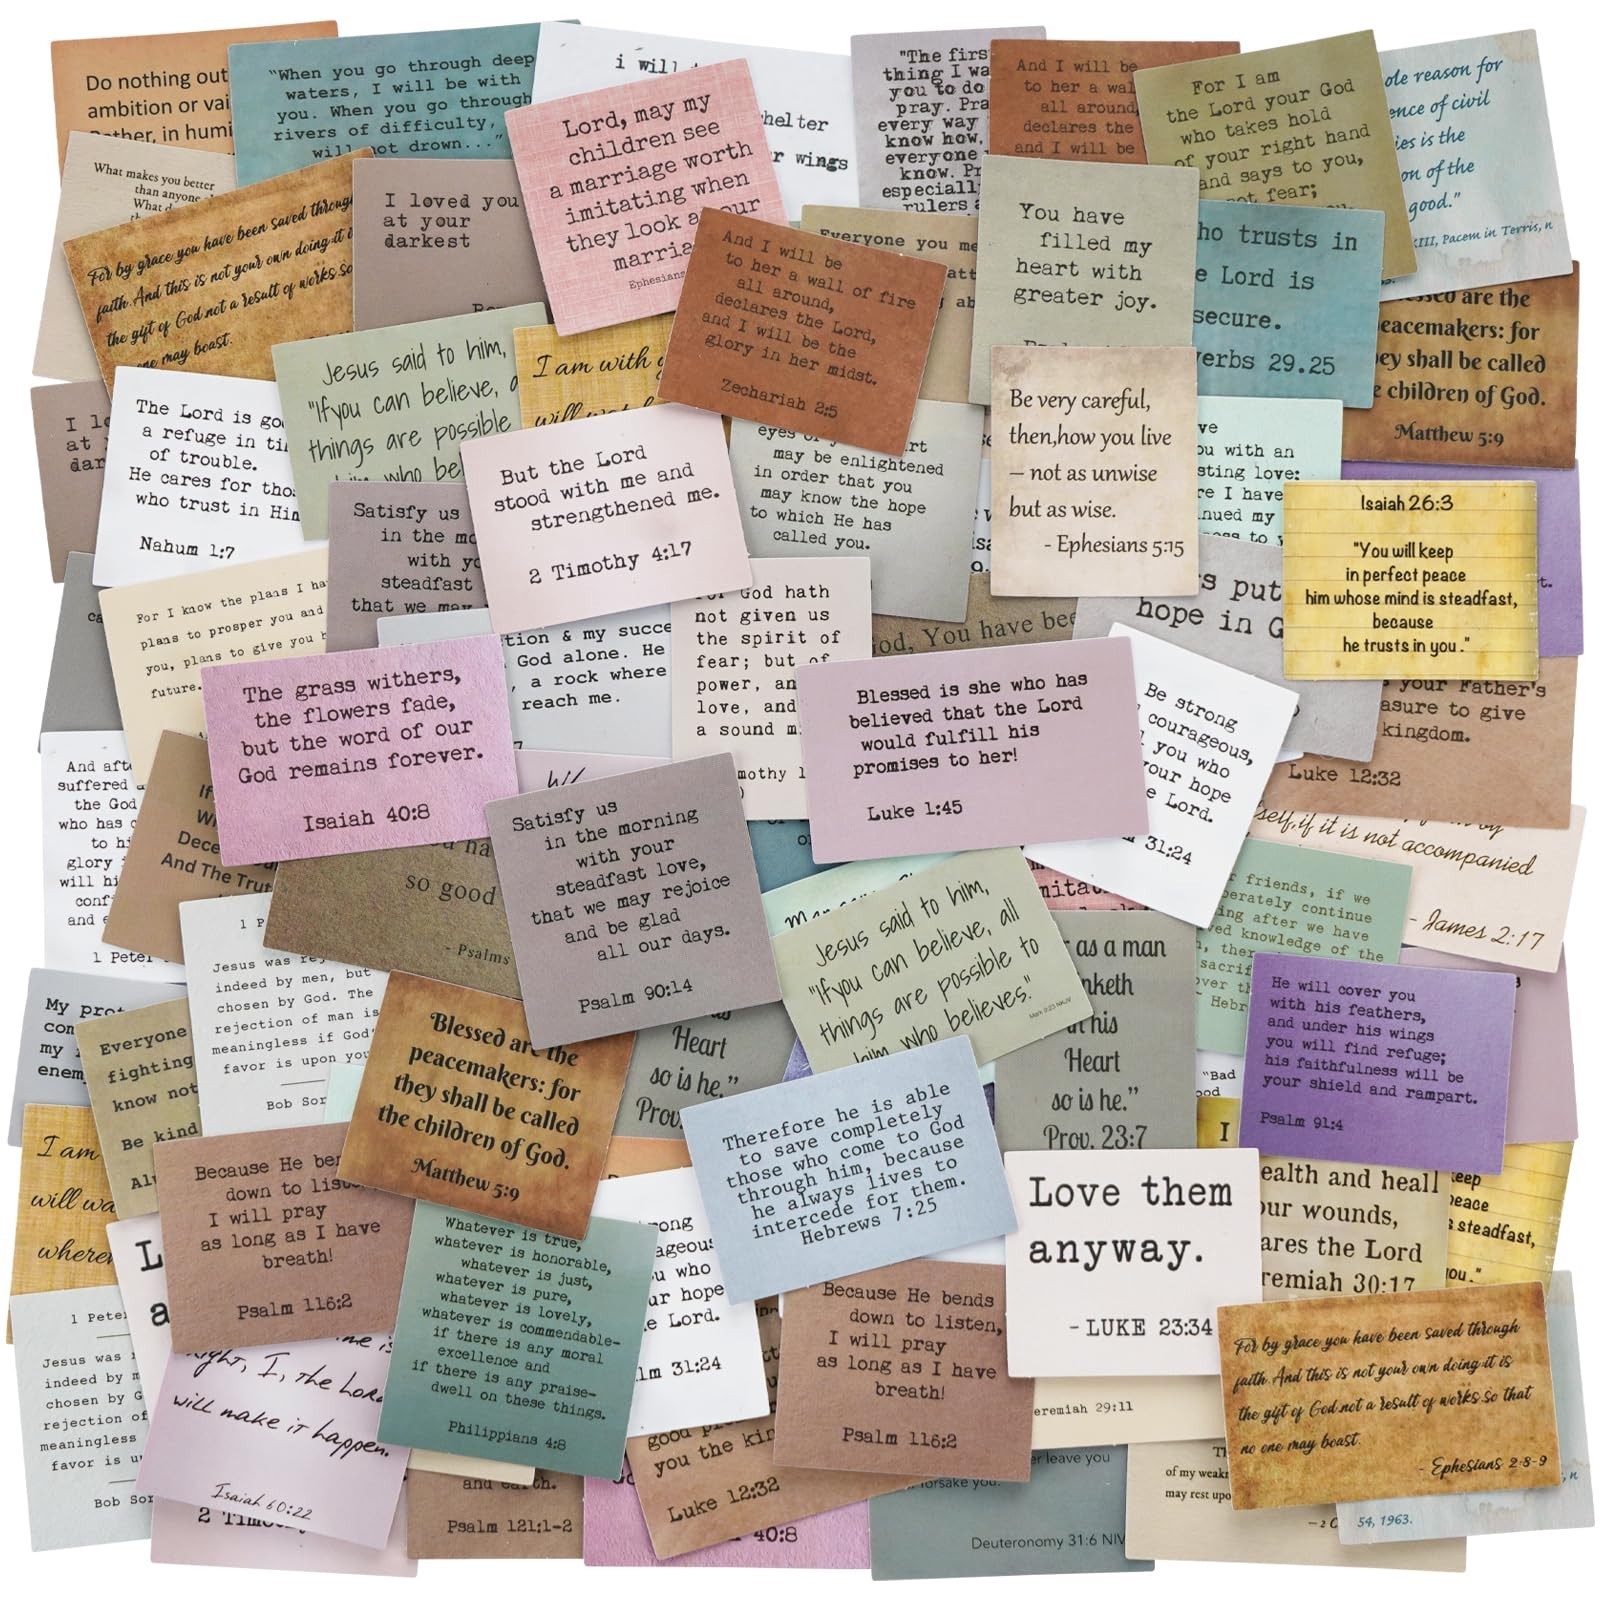 Do nothing out
ambition or vai
Rather, in humi
"When you go through deep
waters, I will be with
you. When you go through
rivers of difficulty,
will not drown..."
i will
helter
r wings
Lord, may my
children see
a marriage worth
imitating when
they look at our
marria
Ephesians
"The first
thing I wa
you to do
pray. Pra
every way
know how,
everyone
know.
especially
rulers a
And I will be
to her a wal
all around,
declares the
and I will be
For I am
the Lord your God
who takes hold
of your right hand
and says to you,
not fear;
ole reason for
ence of civil
ies is the
on of the
good."
XIII, Pacem in Terris, n
What makes you better
than anyone
What d
For by grace you have been saved through
faith. And this is not your own doing:it i
the gift of God.not a result of works.so
one may boast.
I loved you
at your
darkest
And I will be
to her a wall of fire
all around,
declares the Lord,
and I will be the
glory in her midst.
Zechariah 2:5
Everyone you me
You have
filled my
heart with
greater joy.
ho trusts in
e Lord is
secure.
verbs 29.25
essed are the
eacemakers: for
ey shall be called
e children of God.
Matthew 5:9
I lo
at
dar
The Lord is go
a refuge in ti
of trouble.
He cares for tho
who trust in Him
Nahum 1:7
Jesus said to him,
"Ifyou can believe, a
things are possible
him who bel
I am with y
But the Lord
stood with me and
strengthened me.
2 Timothy 4:17
eyes of y
rt
may be enlightened
in order that you
may know the hope
to which He has
called you.
Be very careful,
then,how you live
– not as unwise
but as wise.
- Ephesians 5:15
ve
ou with an
sting love;
re I have
nued my
ness to y
Isaiah 26:3
"You will keep
in perfect peace
him whose mind is steadfast,
because
he trusts in you."
t.
Satisfy us
in the mo
with yo
steadfast
that we may
For I know the plans I ha
plans to prosper you and
you, plans to give you h
future.
ca
tion & my succe
God alone. He
, a rock where
reach me.
For God hath
not given us
the spirit of
fear; but of
power, an
love, and
a sound m
mothy 1
God, You have bee
s put
hope in G
The grass withers,
the flowers fade,
but the word of our
God remains forever.
Isaiah 40:8
Blessed is she who has
believed that the Lord
would fulfill his
promises to her!
Luke 1:45
Be strong
courageous,
l you who
your hope
e Lord.
m 31:24
your Father's
asure to give
kingdom.
Luke 12:32
And afte
suffered a
the God
who has c
to hi
glory i
will hi
conf
and e
1 Peter
If
Wi
Dece
And The Trut
ou ha
so good
- Psalms
Satisfy us
in the morning
with your
steadfast love,
that we may rejoice
and be glad
all our days.
Psalm 90:14
Jesus said to him,
"Ifyou can believe, all
things are possible to
him who believes."
Mark 9:23 NKJV
imitat
self,if it is not accompanied
- James 2:17
r friends, if we
erately continue
ing after we have
ved knowledge of the
, ther
sacrif
over th
- Hebr
1 P
Jesus was rej
indeed by men, but
chosen by God. The
rejection of man is
meaningless if God'
favor is upon you
Bob Sor
My prot
com
my
enem
Everyone
fighting
know not
Be kind
Alw
Blessed are the
peacemakers: for
they shall be called
the children of God.
Matthew 5:9
Heart
so is he."
Prov.
r as a man
inketh
in his
Heart
so is he."
Prov. 23:7
He will cover you
with his feathers,
and under his wings
you will find refuge;
his faithfulness will be
your shield and rampart.
Psalm 91:4
"Bad
ood
I am
will wa
wherev
Because He ben
down to liste
I will pray
as long as I have
breath!
Psalm 116:2
Therefore he is able
to save completely
those who come to God
through him, because
he always lives to
intercede for them.
Hebrews 7:25
Love them
anyway.
-LUKE 23:34
I
ealth and heal
our wounds,
ares the Lord
remiah 30:17
keep
peace
s steadfast,
ou."
Whatever is true,
whatever is honorable,
whatever is just,
whatever is pure,
whatever is lovely,
whatever is commendable-
if there is any moral
excellence and
if there is any praise-
dwell on these things.
Philippians 4:8
rong
ageous
u who
ur hope
e Lord.
lm 31:24
Because He bends
down to listen,
I will pray
as long as I have
breath!
Psalm 116:2
For by grace you have been saved through
faith. And this is not your own doing:it is
the gift of God.not a result of works.so that
no one may boast.
- Ephesians 2:8-9
1 Peter
Jesus was r
indeed by m
chosen by G
rejection of
meaningless
favor is u
Bob Sor
L
a
me is
right, I, the Lord
will make it happen.
Isaiah 60:22
2 Timothy
and earth.
Psalm 121:1-2
good p
you the kin
Luke 12:32
40:8
eremiah 29:11
er leave you
forsake you.
Deuteronomy 31:6 NIV
Th
of my weakn
may rest upo
—2 C
54, 1963.
, n